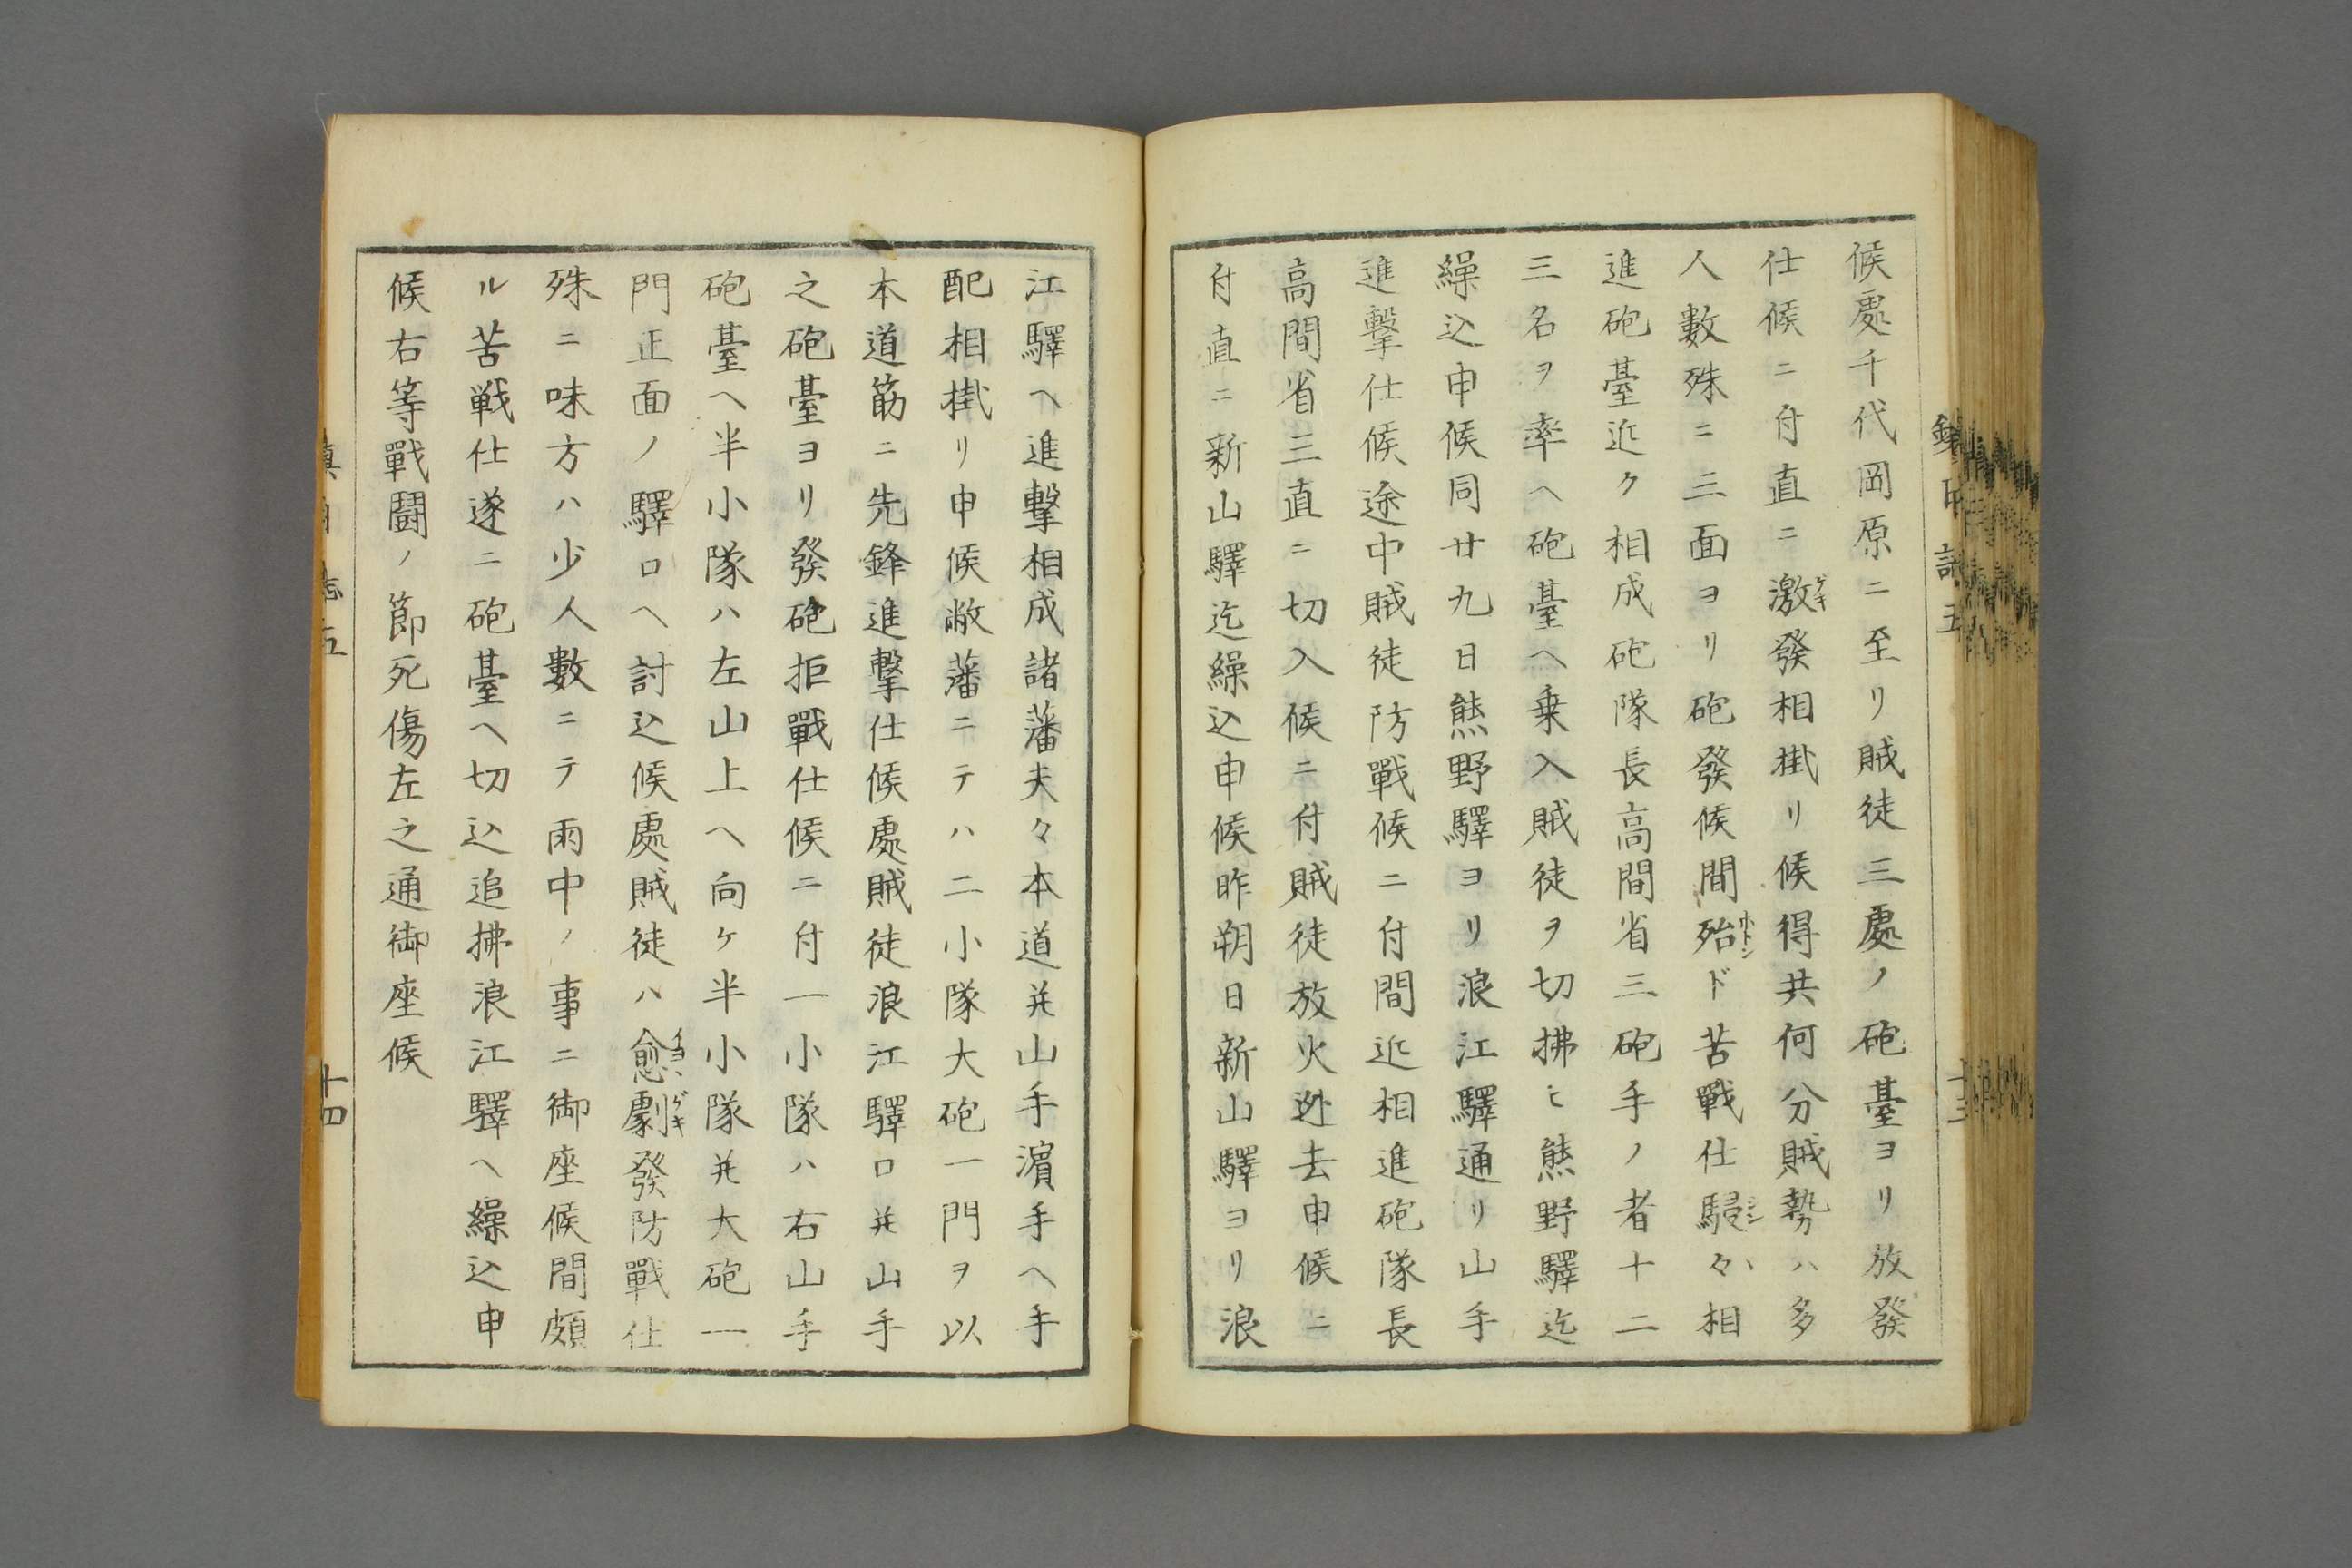 候處千代岡原ニ至リ賊徒三處ノ砲臺ヨリ放發
仕候ニ付直ニ激發相掛リ候得共何分賊勢ハ多
人數殊ニ三面ヨリ砲發候間殆ド苦戰仕駸々相
進砲臺近ク相成砲隊長高間省三砲手ノ者十二
三名ヲ率ヘ砲臺ヘ乗入賊徒ヲ切拂ヒ熊野驛迄
繰込申候同廿九日熊野驛ヨリ浪江驛通リ山手
進撃仕候途中賊徒防戰候ニ付間近相進砲隊長
高間省三直ニ切入候ニ付賊徒放火迯去申候ニ
付直ニ新山驛迄繰込申候昨朔日新山驛ヨリ浪
江驛ヘ進撃相成諸藩夫々本道并山手濵手ヘ手
配相掛リ申候敝藩ニテハ二小隊大砲一門ヲ以
本道筋ニ先鋒進撃仕候處賊徒浪江驛口并山手
之砲臺ヨリ發砲拒戰仕候ニ付一小隊ハ右山手
砲臺ヘ半小隊ハ左山上ヘ向ケ半小隊并大砲一
門正面ノ驛口ヘ討込候處賊徒ハ愈劇發防戰仕
殊ニ味方ハ少人數ニテ雨中ノ事ニ御座候間頗
ル苦戦仕遂ニ砲臺ヘ切込追拂浪江驛ヘ繰込申
候右等戰闘ノ節死傷左之通御座候
十四